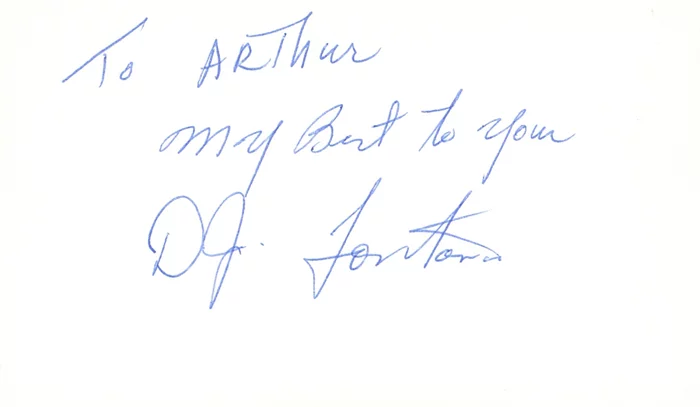 To ARThur
My Best to your
D.J. Fontana